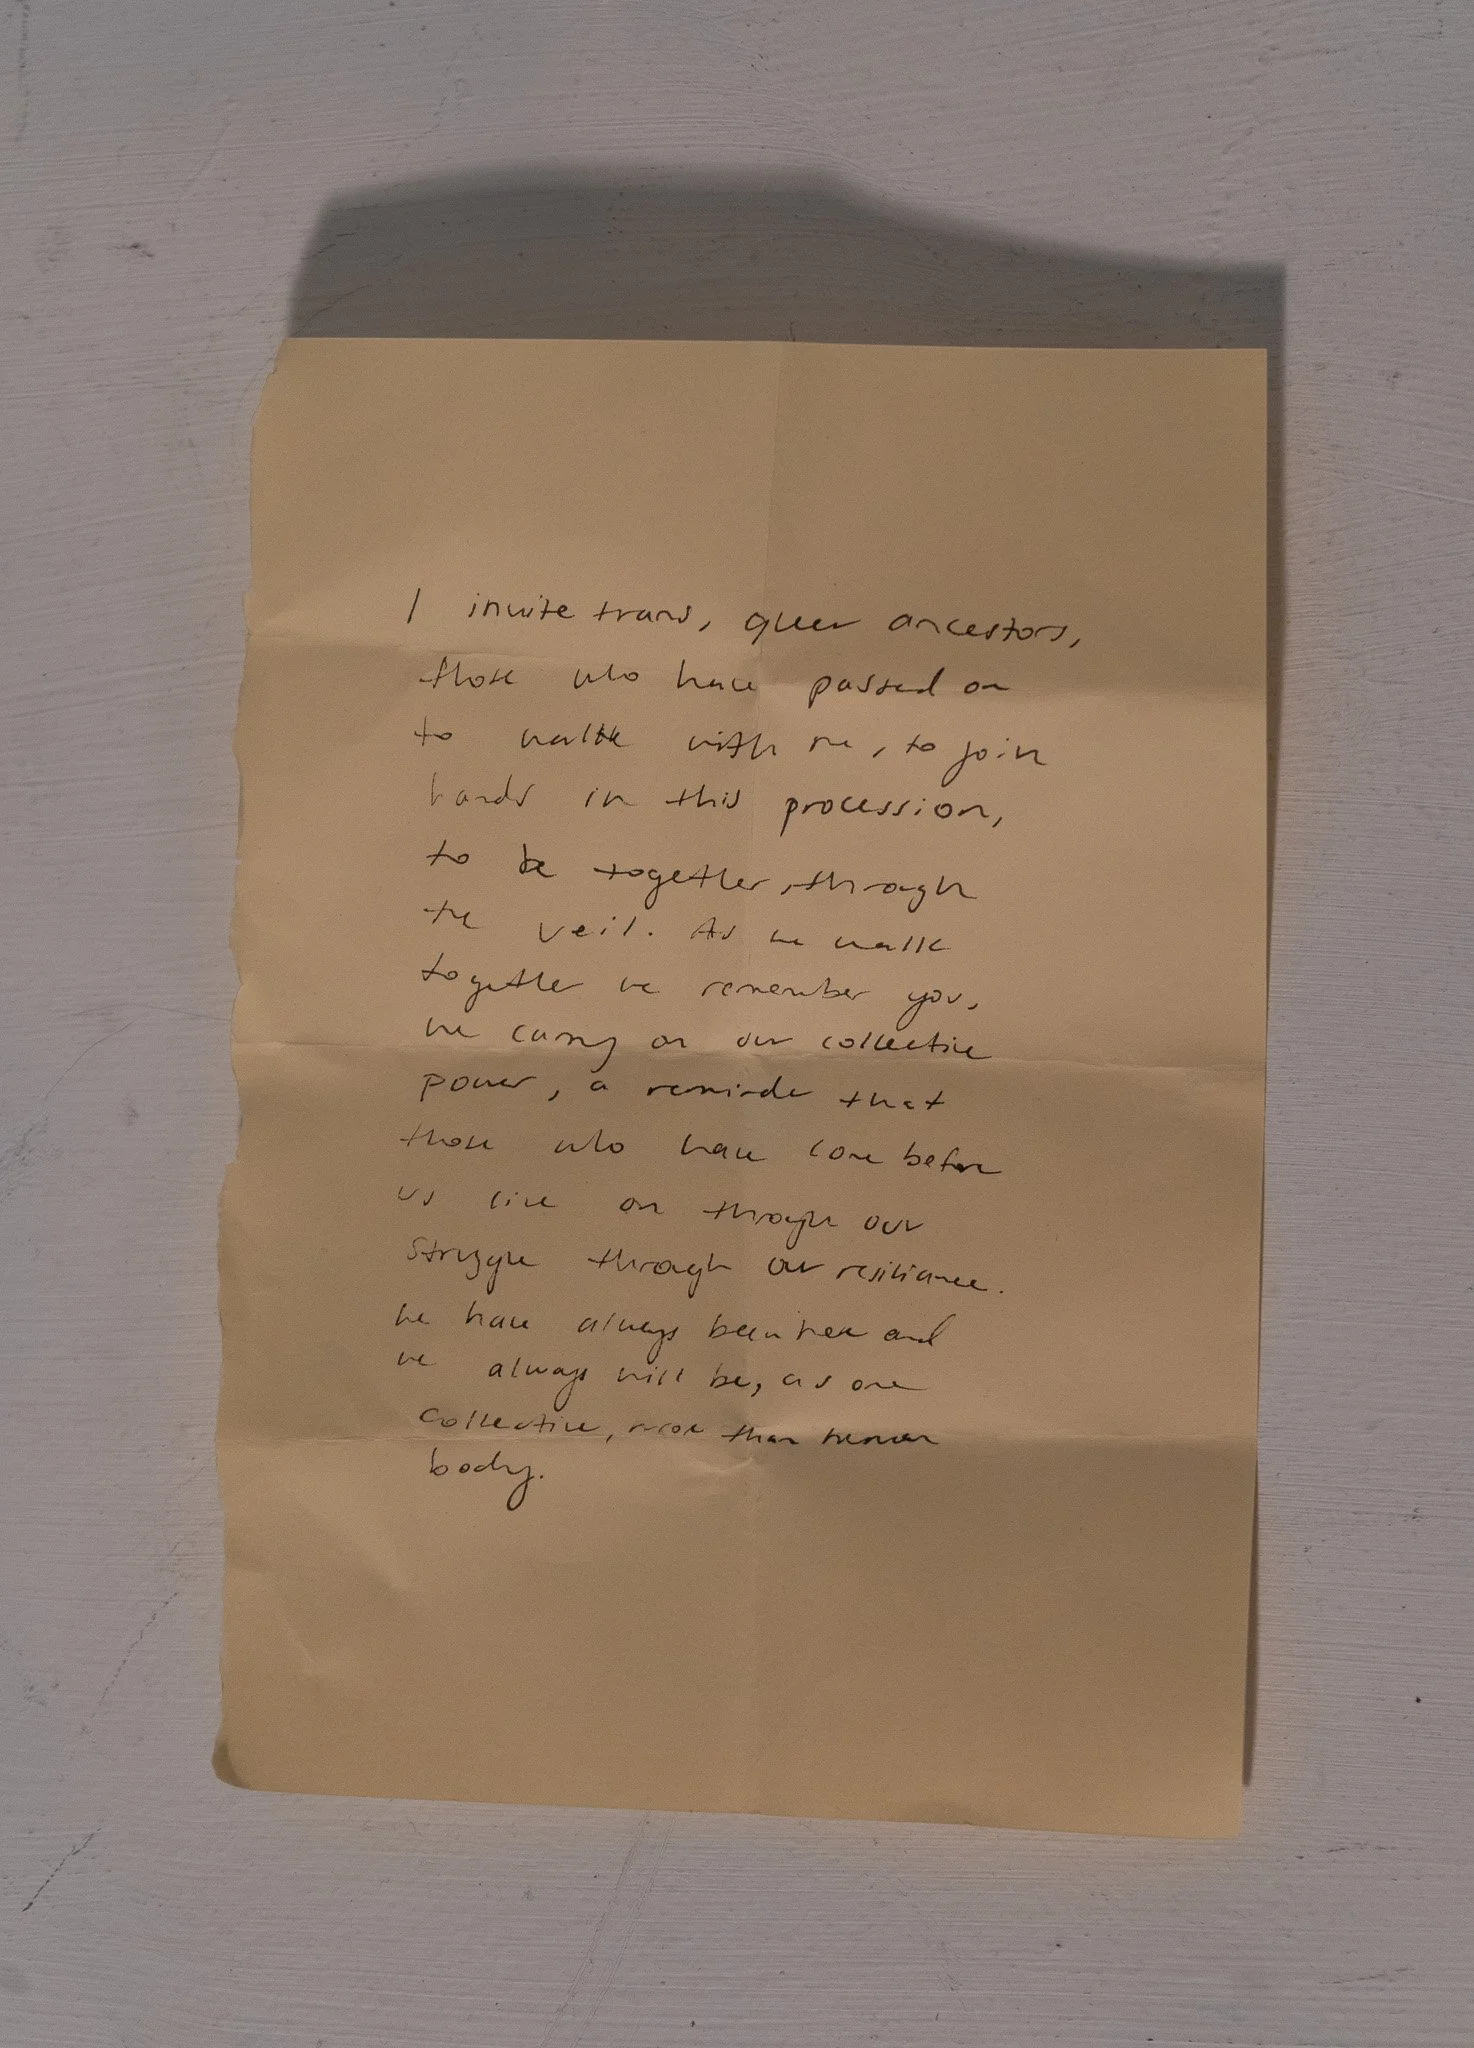 I invite trans, queer ancestors,
those who have passed on
to walk with me, to join
hands in this procession,
to be together, through
the veil. As we walk
together we remember you,
we carry on our collective
power, a reminder that
those who have come before
us live on through our
struggle through our resilience.
we have always been here and
we always will be, as one
collective, more than human
body.